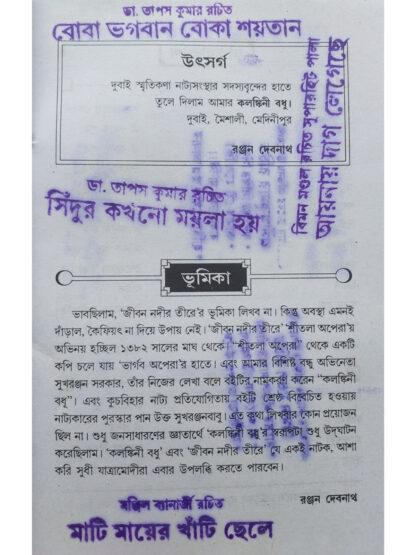 ডা. তাপস কুমার রচিত
বোবা ভগবান বোকা শয়তান
উৎসর্গ
দুবাই স্মৃতিকণা নাট্যসংস্থার সদস্যবৃন্দের হাতে
তুলে দিলাম আমার কলঙ্কিনী বধু।
দুবাই, মৈশালী, মেদিনীপুর
রঞ্জন দেবনাথ
বিমন মণ্ডল রচিত সুপারহিট পালা
আয়নায় দাগ লেগেছে
ডা. তাপস কুমার রচিত
সিঁদুর কখনো ময়লা হয়
ভূমিকা
ভাবছিলাম, ‘জীবন নদীর তীরে’র ভূমিকা লিখব না। কিন্তু অবস্থা এমনই
দাঁড়াল, কৈফিয়ৎ না দিয়ে উপায় নেই। ‘জীবন নদীর তীরে’ ‘শীতলা অপেরা’য়
অভিনয় হচ্ছিল ১৩৮২ সালের মাঘ থেকে। “শীতলা অপেরা” থেকে একটি
কপি চলে যায় ‘ভার্গব অপেরা’র হাতে। এবং আমার বিশিষ্ট বন্ধু অভিনেতা
সুখরঞ্জন সরকার, তাঁর নিজের লেখা বলে বইটির নামকরণ করেন “কলঙ্কিনী
বধূ”। এবং কুচবিহার নাট্য প্রতিযোগিতায় বইটি শ্রেষ্ঠ বিবেচিত হওয়ায়
নাট্যকারের পুরস্কার পান উক্ত সুখরঞ্জনবাবু। এত কথা লিখবার কোন প্রয়োজন
ছিল না। শুধু জনসাধারণের জ্ঞাতার্থে ‘কলঙ্কিনী বধূ’র স্বরূপটা শুধু উদ্ঘাটন
করেছিলাম। ‘কলঙ্কিনী বধূ’ এবং ‘জীবন নদীর তীরে’ যে একই নাটক, আশা
করি সুধী যাত্রামোদীরা এবার উপলব্ধি করতে পারবেন।
রঞ্জন দেবনাথ
ব্যানার্জী রচিত
মাটি মায়ের খাঁটি ছেলে